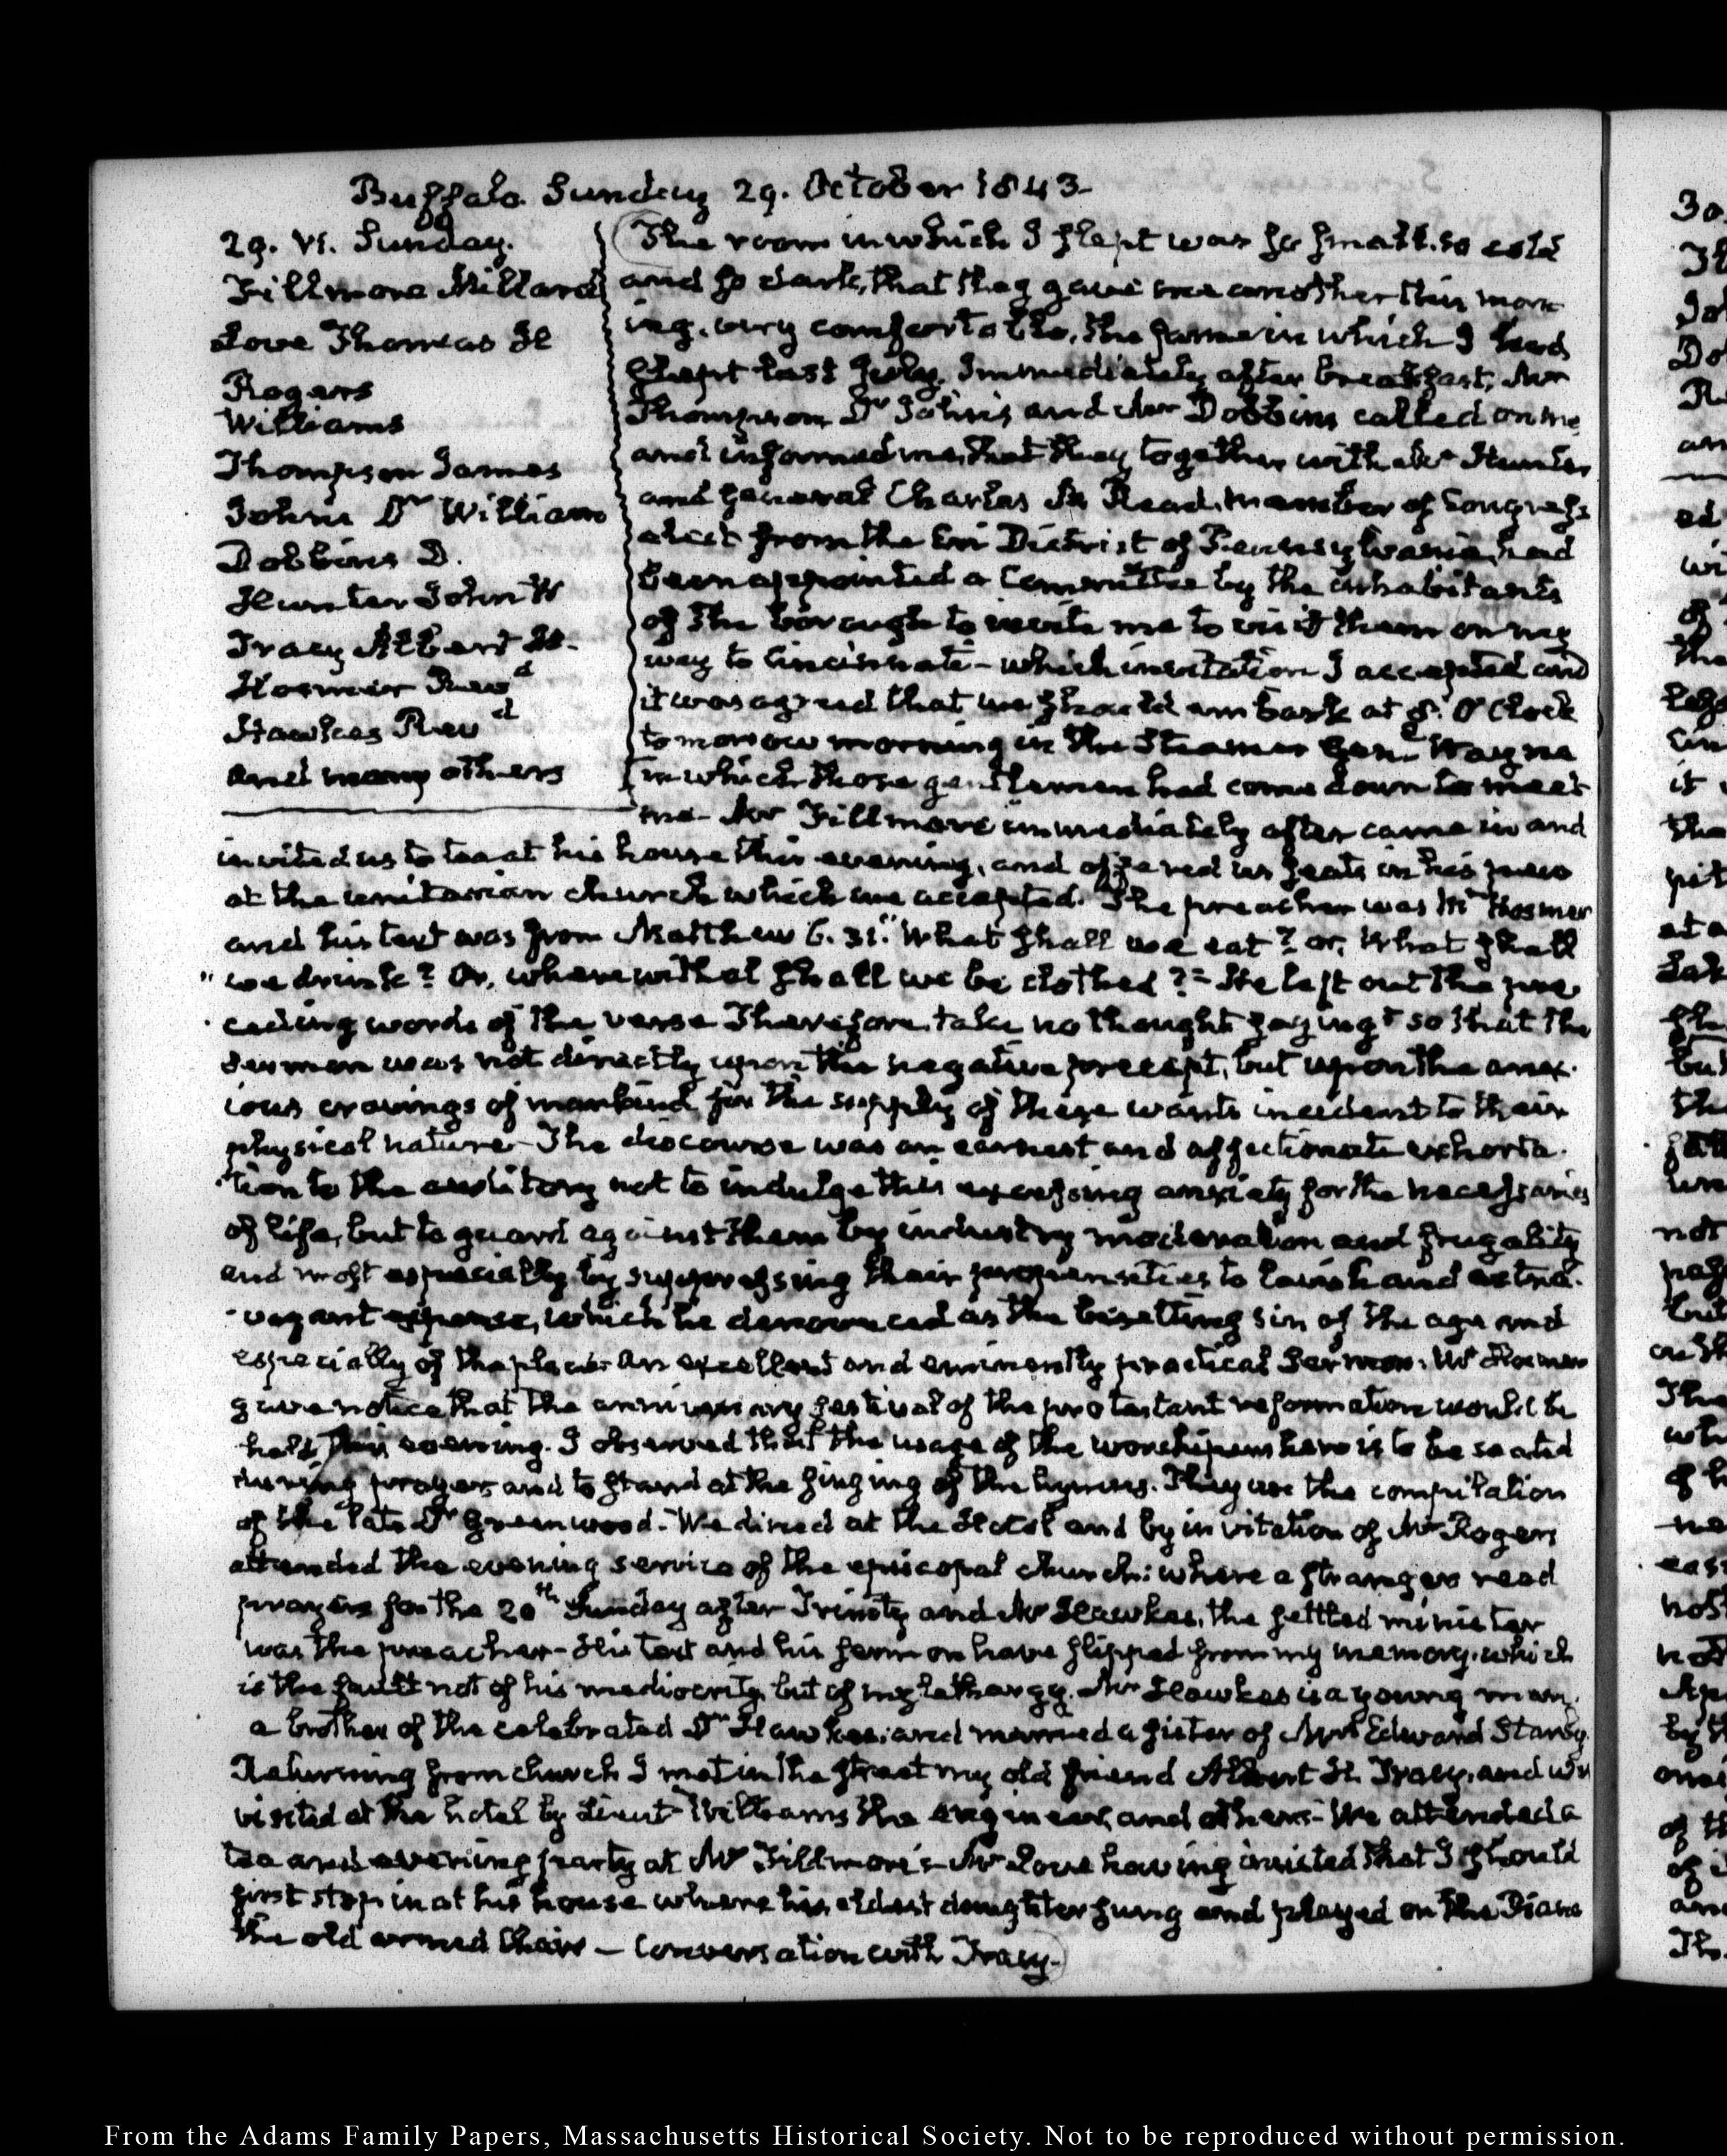 Buffalo. Sunday 29. October 1843.
29. VI. Sunday.
Fillmore Millard
Love Thomas
Rogers
Williams
Thompson James
Johns Dr William
Dobbins D.
Hunter John W
Tracy Albert H.
Hosmer Revd
Hawkes Revd
and many others
The room in which I slept was so small, so cold
and so dark, that they gave me another this morn-
ing, very comfortable, the same in which I had
slept last July. Immediately after breakfast, Mr
Thompson Dr Johns and Mr Dobbins called on me
and informed me, that they together with Mr Hunter
and General Charles M. Read, member of Congress
elect from the Erie District of Pennsylvania, had
been appointed a Committee by the inhabitants
of the borough to invite me to visit them on my
way to Cincinnati - which invitation I accepted and
it was agreed that we should embark at 8. O'Clock
tomorrow morning in the Steamer Genl Wayne
in which those gentlemen had come down to meet
me - Mr Fillmore immediately after came in and
invited us to tea at his house this evening, and offered us seats in his pew
at the unitarian church which we accepted. The preacher was Mr Hosmer
and his text was from Matthew 6. 31. "What shall we eat? or, What shall
"we drink? Or, wherewithal shall we be clothed?" He left out the pre
ceding words of the verse Therefore, take no thought saying so that the
sermon was not directly upon the negative precept, but upon the anx-
ious cravings of mankind for the supply of these wants incident to their
physical nature - The discourse was an earnest and affectionate exhorta-
tion to the auditory not to indulge this anxiety for the necessaries
of life, but to guard against them by industry moderation and frugality
and most especially by suppressing their propensities to lavish and extra-
vagant expense, which he denounced as the besetting sin of the age and
especially of the place. An excellent and eminently practical Sermon. Mr Hosmer
gave notice that the anniversary festival of the protestant reformation would be
held this evening. I observed that the usage of the worshippers here is to be seated
during prayer and to stand at the singing of the hymns. They use the compilation
of the late Dr Greenwood. We dined at the Hotel and by invitation of Mr Rogers
attended the evening service of the episcopal church: where a stranger read
prayers for the 20th Sunday after Trinity and Mr Hawkes, the settled minister
was the preacher - His text and his sermon have slipped from my memory. which
is the fault not of his mediocrity, but of my lethargy. Mr Hawkes is a young man.
a brother of the celebrated Dr Hawkes. and married a sister of Mrs Edward Stanly.
Returning from church I met in the street my old friend Albert H. Tracy, and was
visited at the hotel by Lieut Williams the engineer, and others - We attended a
tea and evening party at Mr Fillmore's - Mr Love having insisted that I should
first stop in at his house where his eldest daughter sung and played on the Piano
the old armed Chair - Conversation with Tracy.
From the Adams Family Papers, Massachusetts Historical Society. Not to be reproduced without permission.